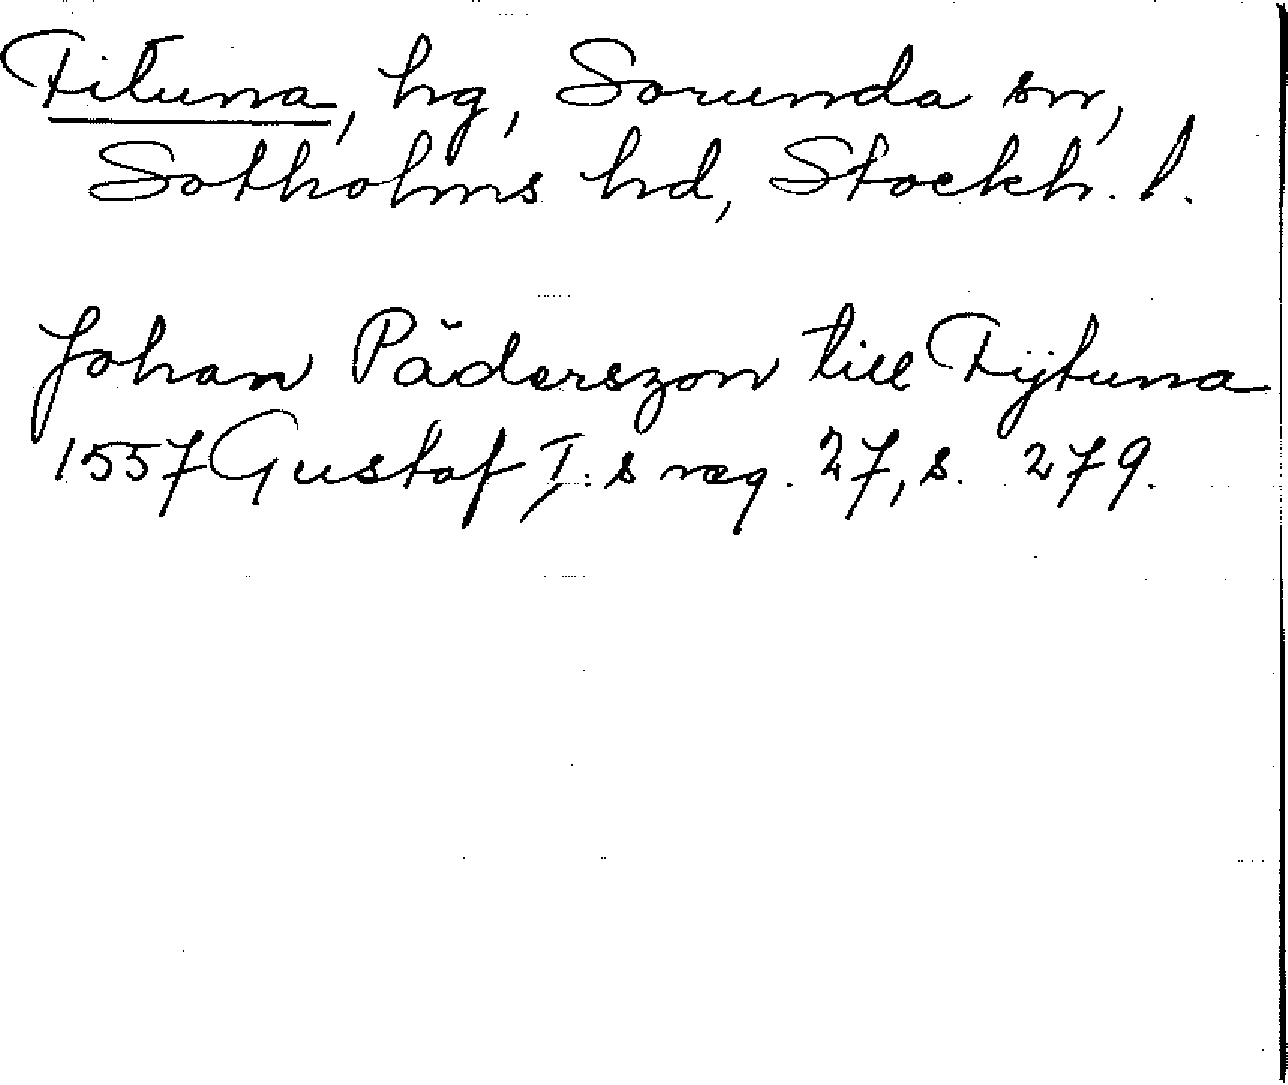 Fituna, hg, Sorunda sn,
Sotholms hd, Stockh. l.
Johan Päderszon till Fijtuna
1557 Gustaf I:s reg. 27, s. 279.